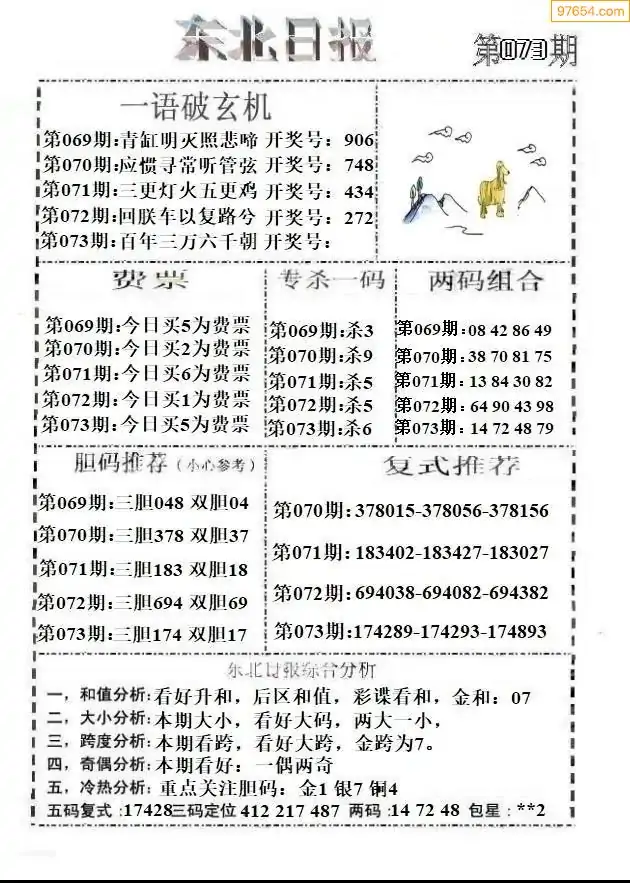 97654.com
东北日报
第073期
一语破玄机
第069期:青缸明灭照悲啼 开奖号：906
第070期:应惯寻常听管弦 开奖号：748
第071期:三更灯火五更鸡 开奖号：434
第072期:回朕车以复路兮 开奖号：272
第073期:百年三万六千朝 开奖号：
费票
第069期:今日买5为费票
第070期:今日买2为费票
第071期:今日买6为费票
第072期:今日买1为费票
第073期:今日买5为费票
专杀一码
第069期:杀3
第070期:杀9
第071期:杀5
第072期:杀5
第073期:杀6
两码组合
第069期:08 42 86 49
第070期:38 70 81 75
第071期:13 84 30 82
第072期:64 90 43 98
第073期:14 72 48 79
胆码推荐（小心参考）
第069期:三胆048 双胆04
第070期:三胆378 双胆37
第071期:三胆183 双胆18
第072期:三胆694 双胆69
第073期:三胆174 双胆17
复式推荐
第070期:378015-378056-378156
第071期:183402-183427-183027
第072期:694038-694082-694382
第073期:174289-174293-174893
东北日报综合分析
一，和值分析:看好升和，后区和值，彩谍看和，金和：07
二、大小分析:本期大小，看好大码，两大一小，
三，跨度分析:本期看跨，看好大跨，金跨为7。
四，奇偶分析:本期看好：一偶两奇
五，冷热分析:重点关注胆码：金1 银7 铜4
五码复式:17428三码定位412 217 487 两码:14 72 48 包星：**2